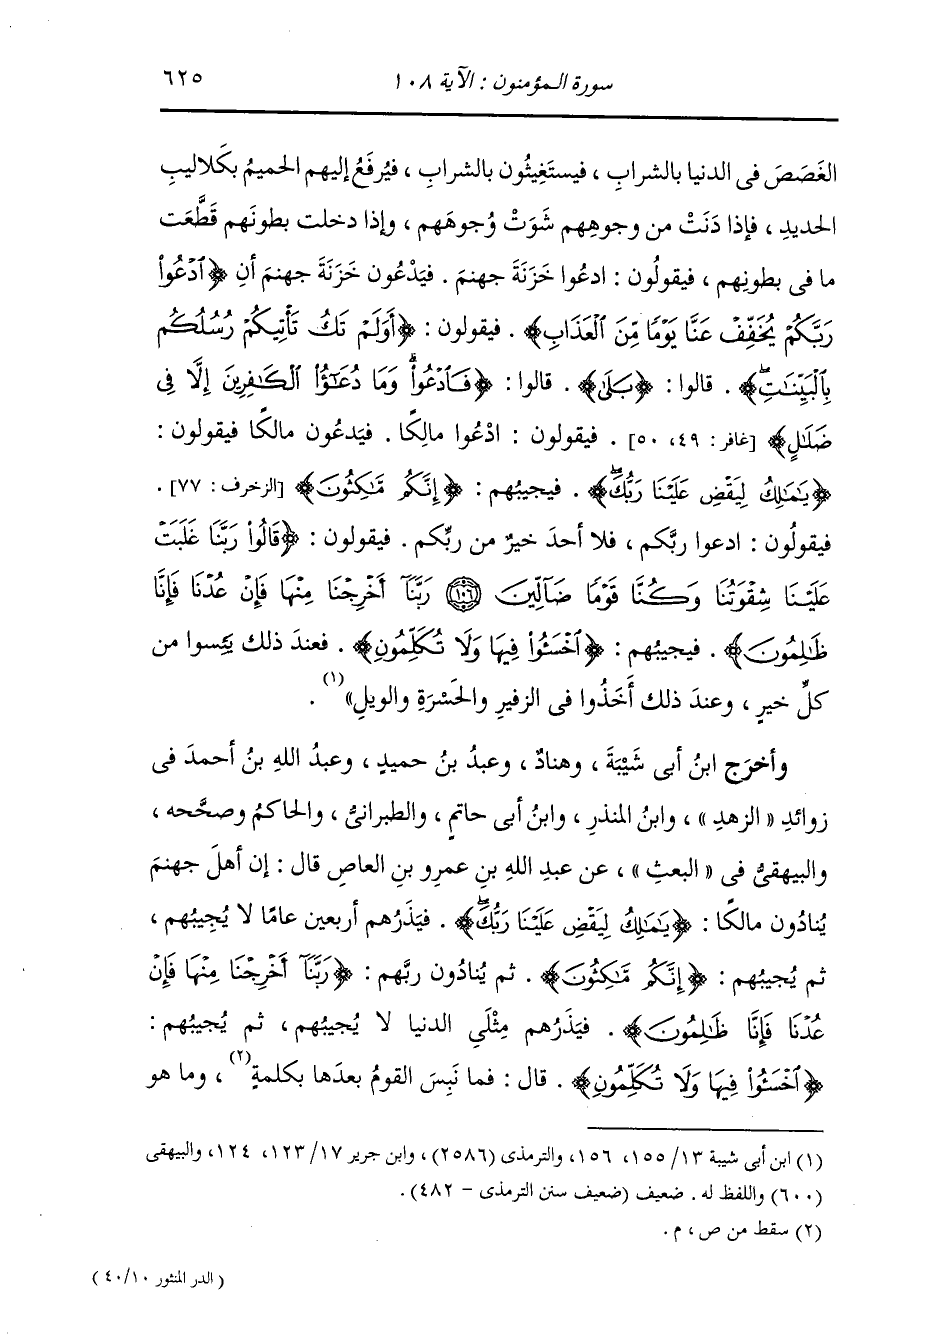 سورة المؤمنون : الآية ١٠٨ ٦٢٥
الغَصَصَ فى الدنيا بالشرابِ ، فيستَغِيثُون بالشرابِ ، فيُرفَعُ إليهم الحميمُ بكَلاليبِ
الحديدِ ، فإذا دَنَتْ من وجوهِهم شَوَتْ وُجوهَهم ، وإذا دخلت بطونَهم قَطَّعَت
ما فى بطونِهم ، فيقولُون : ادعُوا خَزَنَةَ جهنمَ . فيَدْعُون خزنةَ جهنمَ أنِ ﴿ ٱدۡعُواْ
رَبَّكُمۡ يُخَفِّفۡ عَنَّا يَوۡمًا مِّنَ ٱلۡعَذَابِ﴾ . فيقولون : ﴿أَوَلَمۡ تَكُ تَأۡتِيكُمۡ رُسُلُكُم
بِٱلۡبَيِّنَٰتِۖ﴾ . قالوا : ﴿بَلَىٰ﴾ . قالوا : ﴿فَٱدۡعُواْۗ وَمَا دُعَٰٓؤُاْ ٱلۡكَٰفِرِينَ إِلَّا فِى
ضَلَٰلٍ﴾ [غافر : ٤٩، ٥٠] . فيقولون : ادْعُوا مالِكًا . فيَدعُون مالكًا فيقولون :
﴿يَٰمَٰلِكُ لِيَقۡضِ عَلَيۡنَا رَبُّكَۖ﴾ . فيجيبُهم : ﴿إِنَّكُم مَّٰكِثُونَ﴾ [الزخرف : ٧٧] .
فيقولُون : ادعوا ربَّكم ، فلا أحدَ خيرٌ من ربِّكم . فيقولون : ﴿قَالُواْ رَبَّنَا غَلَبَتۡ
عَلَيۡنَا شِقۡوَتُنَا وَكُنَّا قَوۡمًا ضَآلِّينَ ۝١٠٦ رَبَّنَآ أَخۡرِجۡنَا مِنۡهَا فَإِنۡ عُدۡنَا فَإِنَّا
ظَٰلِمُونَ﴾ . فيجيبُهم : ﴿ٱخۡسَـُٔواْ فِيهَا وَلَا تُكَلِّمُونِ﴾ . فعندَ ذلك يَئِسوا من
كلِّ خيرٍ ، وعندَ ذلك أَخَذُوا فى الزفيرِ والحَسْرَةِ والويلِ»(١) .
وأخرَج ابنُ أبى شَيْبَةَ ، وهنادٌ ، وعبدُ بنُ حميدٍ ، وعبدُ اللهِ بنُ أحمدَ فى
زوائدِ « الزهدِ » ، وابنُ المنذرِ ، وابنُ أبى حاتمٍ ، والطبرانىُّ ، والحاكمُ وصحَّحه ،
والبيهقىُّ فى « البعثِ » ، عن عبدِ اللهِ بنِ عمرِو بنِ العاصِ قال : إن أهلَ جهنمَ
يُنادُون مالكًا : ﴿يَٰمَٰلِكُ لِيَقۡضِ عَلَيۡنَا رَبُّكَۖ﴾ . فيَذَرُهم أربعين عامًا لا يُجِيبُهم ،
ثم يُجِيبُهم : ﴿إِنَّكُم مَّٰكِثُونَ﴾ . ثم يُنادُون ربَّهم : ﴿رَبَّنَآ أَخۡرِجۡنَا مِنۡهَا فَإِنۡ
عُدۡنَا فَإِنَّا ظَٰلِمُونَ﴾ . فيَذَرُهم مِثْلَىِ الدنيا لا يُجيبُهم ، ثم يُجيبُهم :
﴿ٱخۡسَـُٔواْ فِيهَا وَلَا تُكَلِّمُونِ﴾ . قال : فما نَبِسَ القومُ بعدَها بكلمةٍ(٢) ، وما هو
(١) ابن أبى شيبة ١٣/ ١٥٥، ١٥٦، والترمذى (٢٥٨٦) ، وابن جرير ١٧/ ١٢٣، ١٢٤، والبيهقى
(٦٠٠) واللفظ له . ضعيف (ضعيف سنن الترمذى – ٤٨٢) .
(٢) سقط من ص ، م .
( الدر المنثور ٤٠/١٠ )